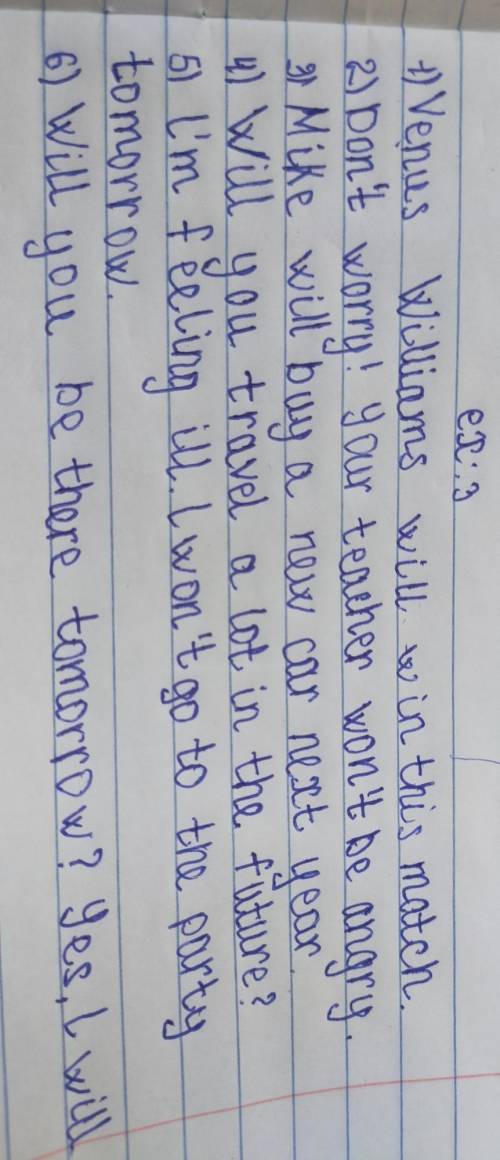 ex:3
1) Venus Williams will win this match.
2) Don't worry! your teacher won't be angry.
3) Mike will buy a new car next year.
4) Will you travel a lot in the future?
5) I'm feeling ill. I won't go to the party
tomorrow.
6) Will you be there tomorrow? Yes, I will